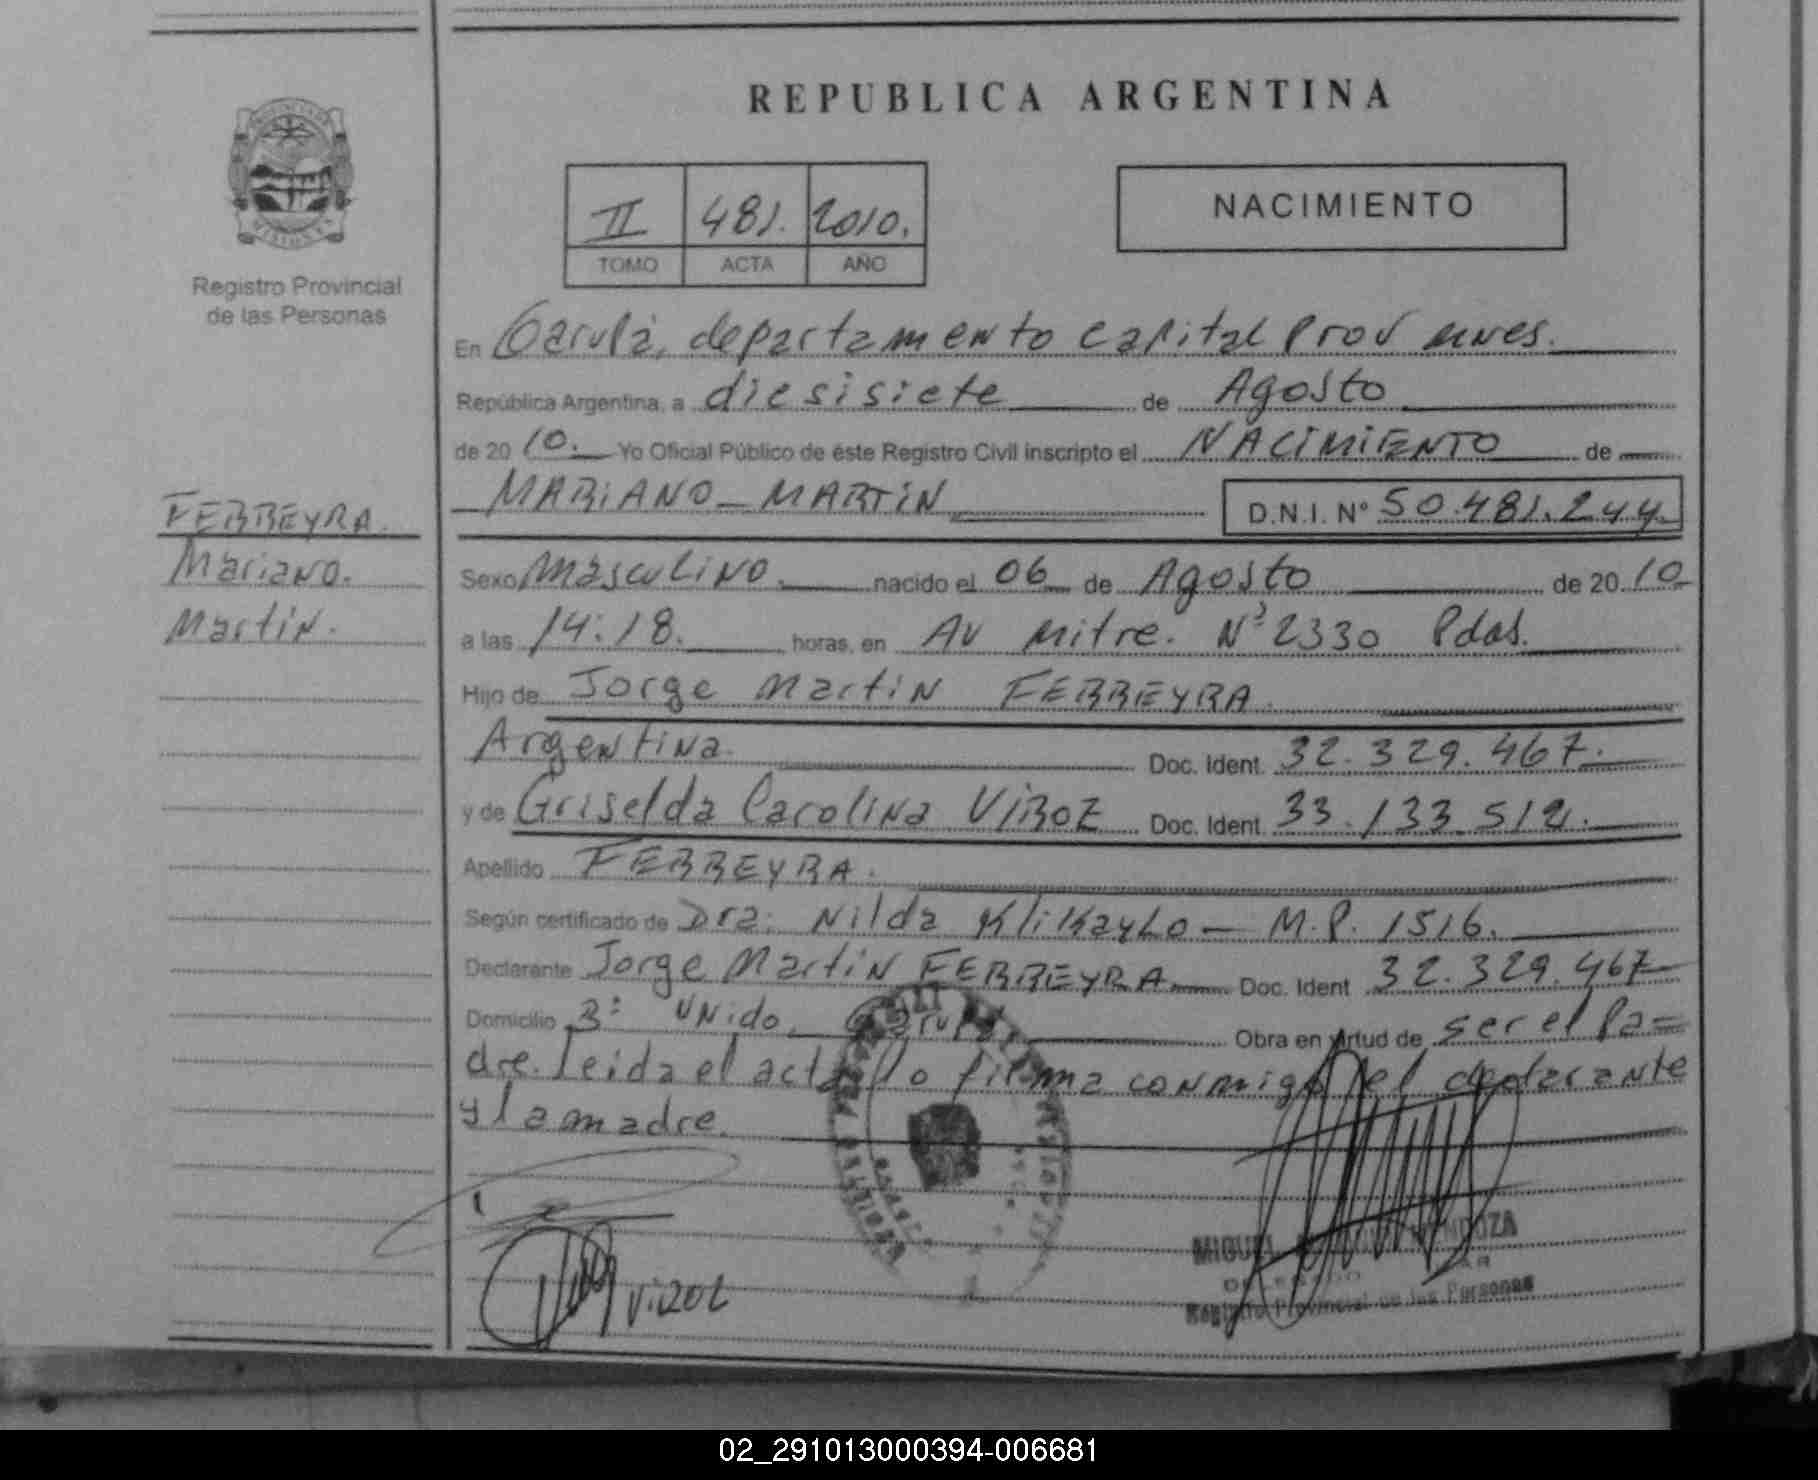 REPUBLICA ARGENTINA
II 481. 2010.
TOMO ACTA AÑO
NACIMIENTO
Registro Provincial
de las Personas
FERREYRA.
Mariano.
Martín.
En Garupá, departamento capital Prov mnes.
República Argentina, a diesisiete de Agosto
de 2010. Yo Oficial Público de éste Registro Civil inscripto el NACIMIENTO de
MARIANO - MARTIN
D.N.I. Nº 50.481.244
Sexo Masculino. nacido el 06 de Agosto de 20 10
a las 14:18. horas, en Av Mitre. Nº 2330 Pdas.
Hijo de Jorge Martin FERREYRA.
Argentina. Doc. Ident. 32.329.467.
y de Griselda Carolina VIROZ Doc. Ident. 33.133.512.
Apellido FERREYRA.
Según certificado de Dra: Nilda Klikaylo - M.P. 1516.
Declarante Jorge Martin FERREYRA Doc. Ident 32.329.467
Domicilio B: Unido, Garupá Obra en virtud de ser el Pa-
dre. leida el acta lo firma conmigo el declarante
y la madre.
MIGUEL MENDOZA
Registro Provincial de las Personas
02_291013000394-006681